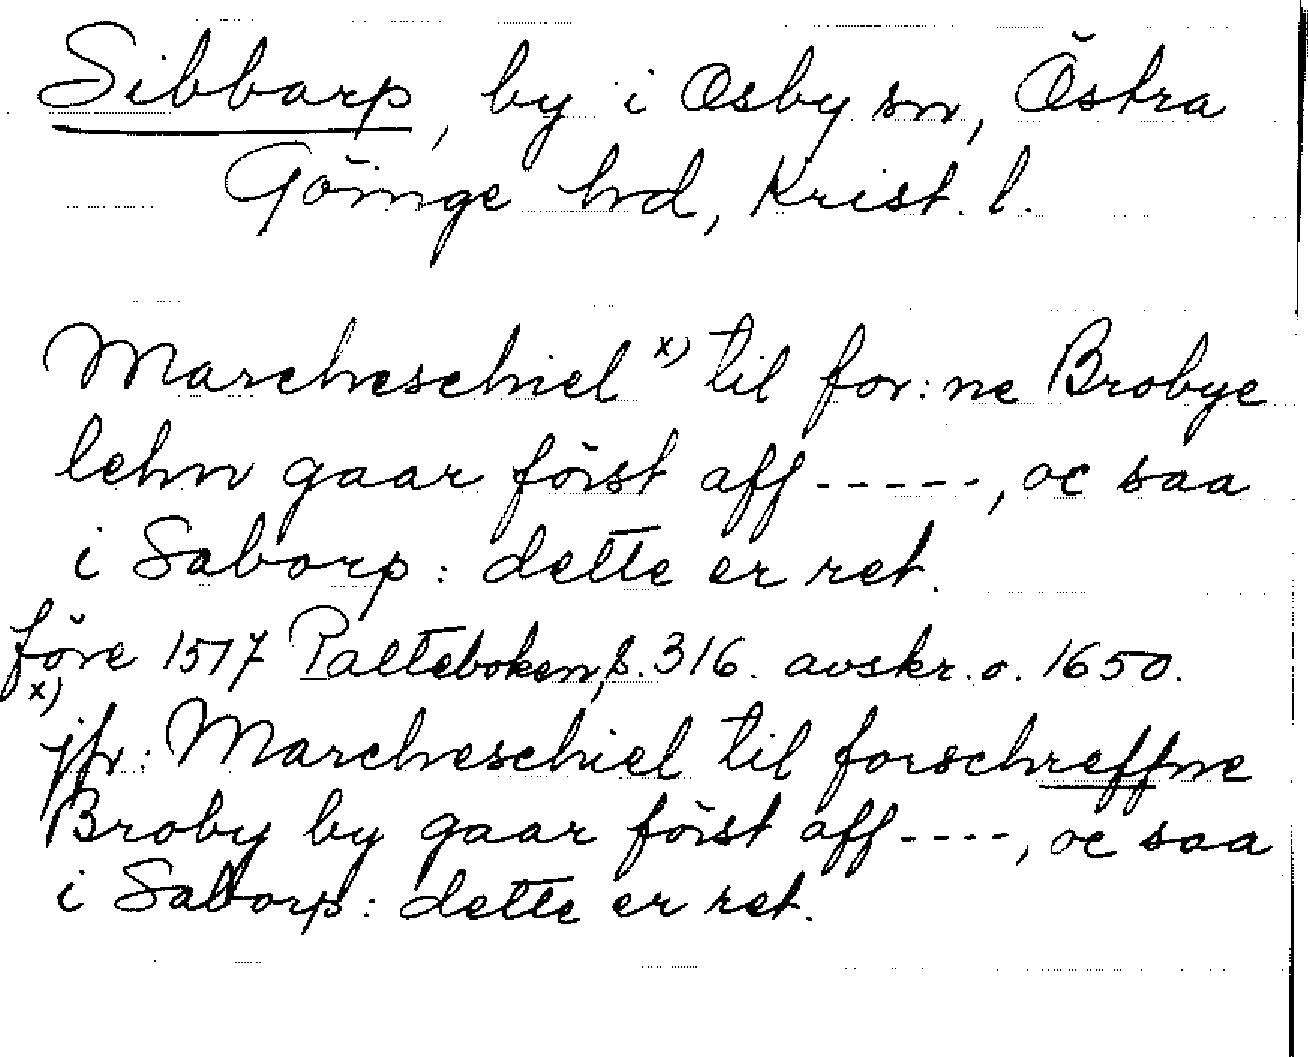 Sibbarp, by i Osby sn, Östra
Göinge hrd, Krist. l.
Marcheschiel x) til for:ne Brobye
lehn gaar först aff -----, oc saa
i Saborp: dette er ret.
före 1517 Palteboken, s. 316. avskr. o. 1650.
x)
jfr: Marcheschiel til forschreffne
Broby by gaar först aff ----, oc saa
i Saborp: dette er ret.